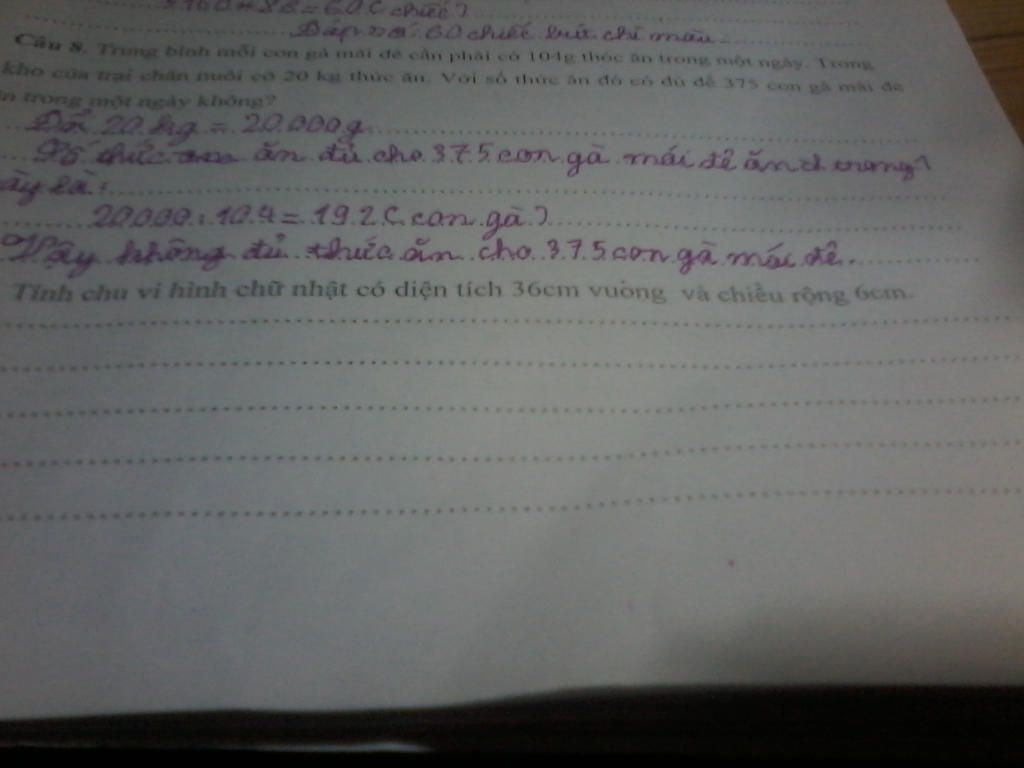 = 160 - 88 = 60 (chiếc)
Đáp số: 60 chiếc bút chì màu
Câu 8. Trung bình mỗi con gà mái đẻ cần phải có 104g thóc ăn trong một ngày. Trong
kho của trại chăn nuôi có 20 kg thức ăn. Với số thức ăn đó có đủ để 375 con gà mái đẻ
n trong một ngày không?
Đổi 20 kg = 20.000g
Số thức ăn đủ cho 375 con gà mái đẻ ăn trong 1
ày là:
20.000 : 104 = 192 (con gà)
Vậy không đủ thức ăn cho 375 con gà mái đẻ.
Tính chu vi hình chữ nhật có diện tích 36cm vuông và chiều rộng 6cm.